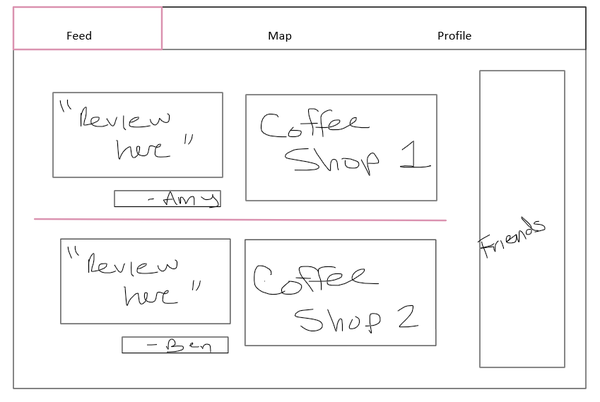 Feed Map Profile
"Review
here"
- Amy
Coffee
Shop 1
"Review
here"
- Ben
Coffee
Shop 2
Friends